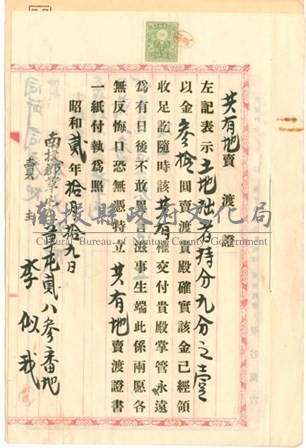 共有地賣渡證
左記表示土地
持分九分之壹
以金參拾圓賣渡貴殿確實該金已經領
收足訖隨時該共有權交付貴殿掌管永遠
為有日後不敢異言滋事生端此係兩愿各
無反悔口恐無憑特立共有地賣渡證書
一紙付執為照
昭和貳年拾月拾九日
南投郡草屯庄草屯貳八參番地
賣主
李似我
南投縣政府文化局
Cultural Bureau of Nantou County Government